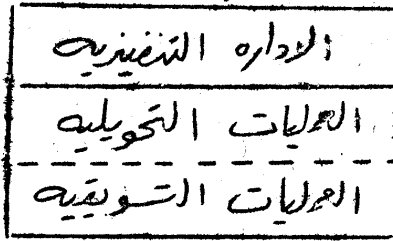 الاداره التنفيذيه
العمليات التحويليه
العمليات التسويقيه